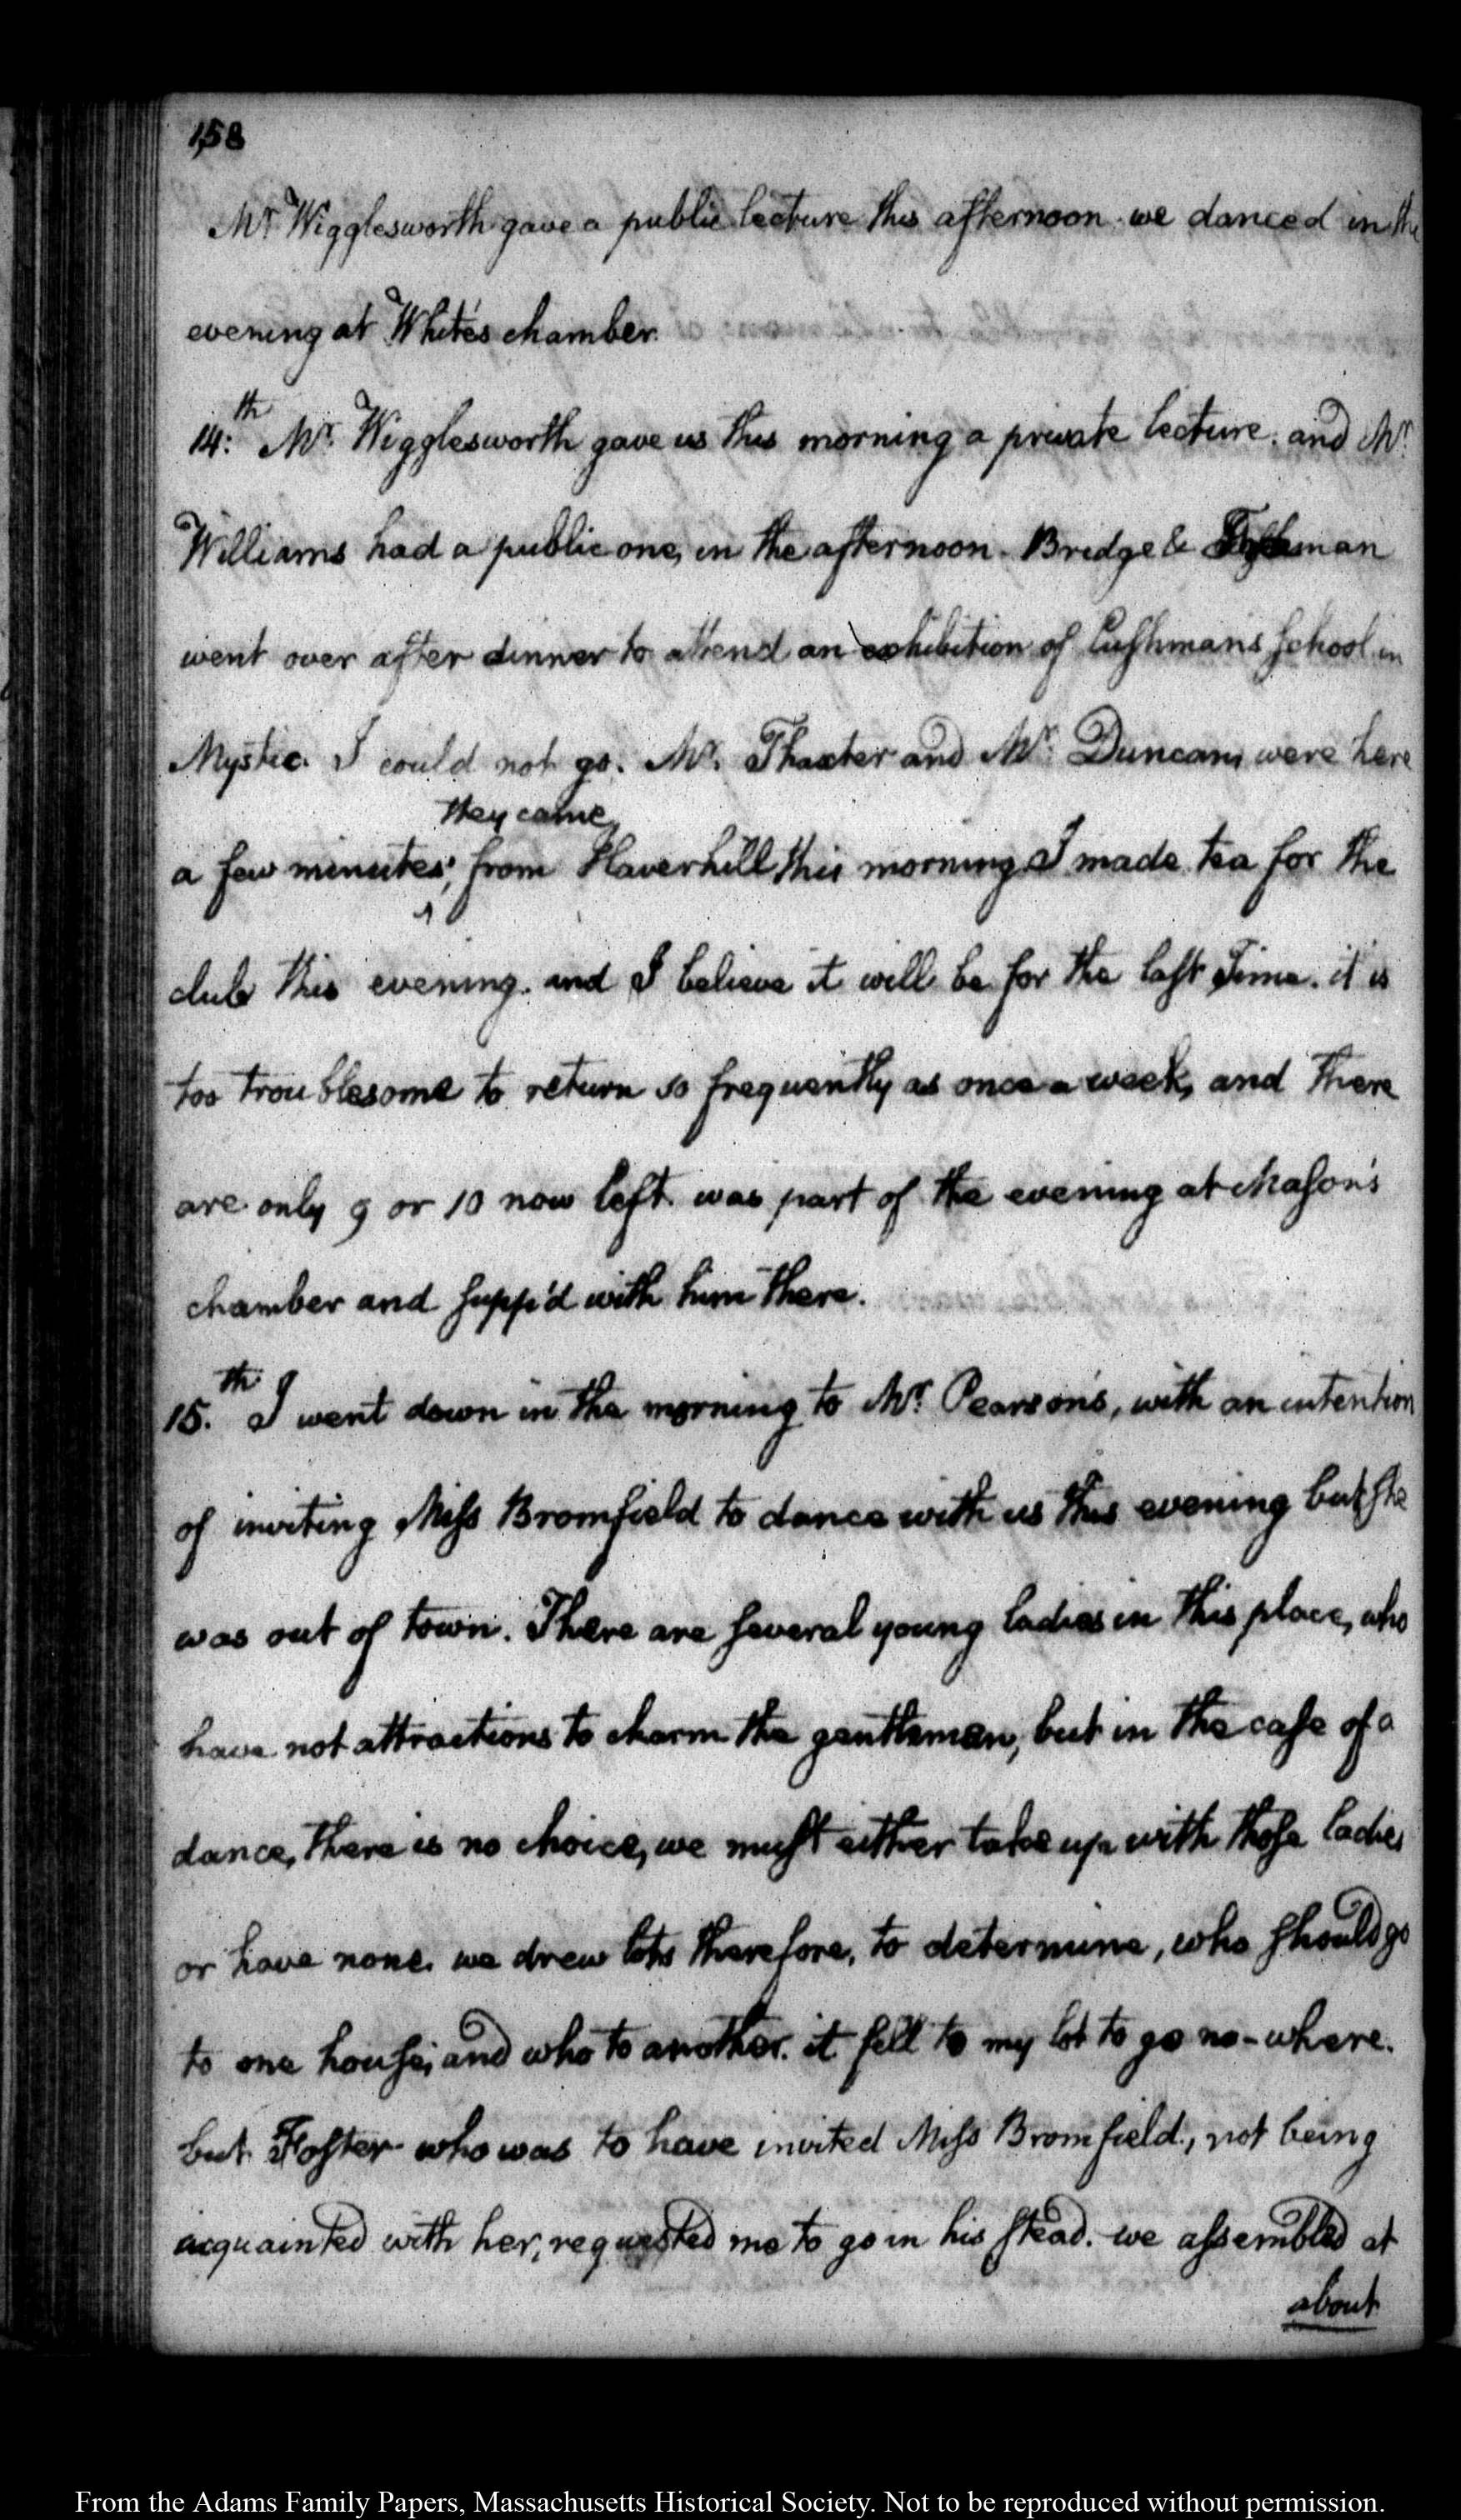 158
Mr. Wigglesworth gave a public lecture this afternoon. we danced in the
evening at White's chamber.
14:th Mr. Wigglesworth gave us this morning a private lecture. and Mr.
Williams had a public one, in the afternoon. Bridge &
went over after dinner to attend an exhibition of Cushmans School in
Mystic. I could not go. Mr. Thaxter and Mr. Duncan, were here
they came
a few minutes; from Haverhill this morning. I made tea for the
^
club this evening. and I believe it will be for the last Time. it is
too troublesome to return so frequently as once a week, and there
are only 9 or 10 now left. was part of the evening at Mason's
chamber and supp'd with him there.
15.th I went down in the morning to Mr. Pearson's, with an intention
of inviting Miss Bromfield to dance with us this evening but she
was out of town. There are several young ladies in this place, who
have not attractions to charm the gentlemen, but in the case of a
dance, there is no choice, we must either take up with those ladies
or have none. we drew lots therefore, to determine, who should go
to one house; and who to another. it fell to my lot to go no-where.
but Foster who was to have invited Miss Bromfield, not being
acquainted with her, requested me to go in his stead. we assembled at
about
From the Adams Family Papers, Massachusetts Historical Society. Not to be reproduced without permission.